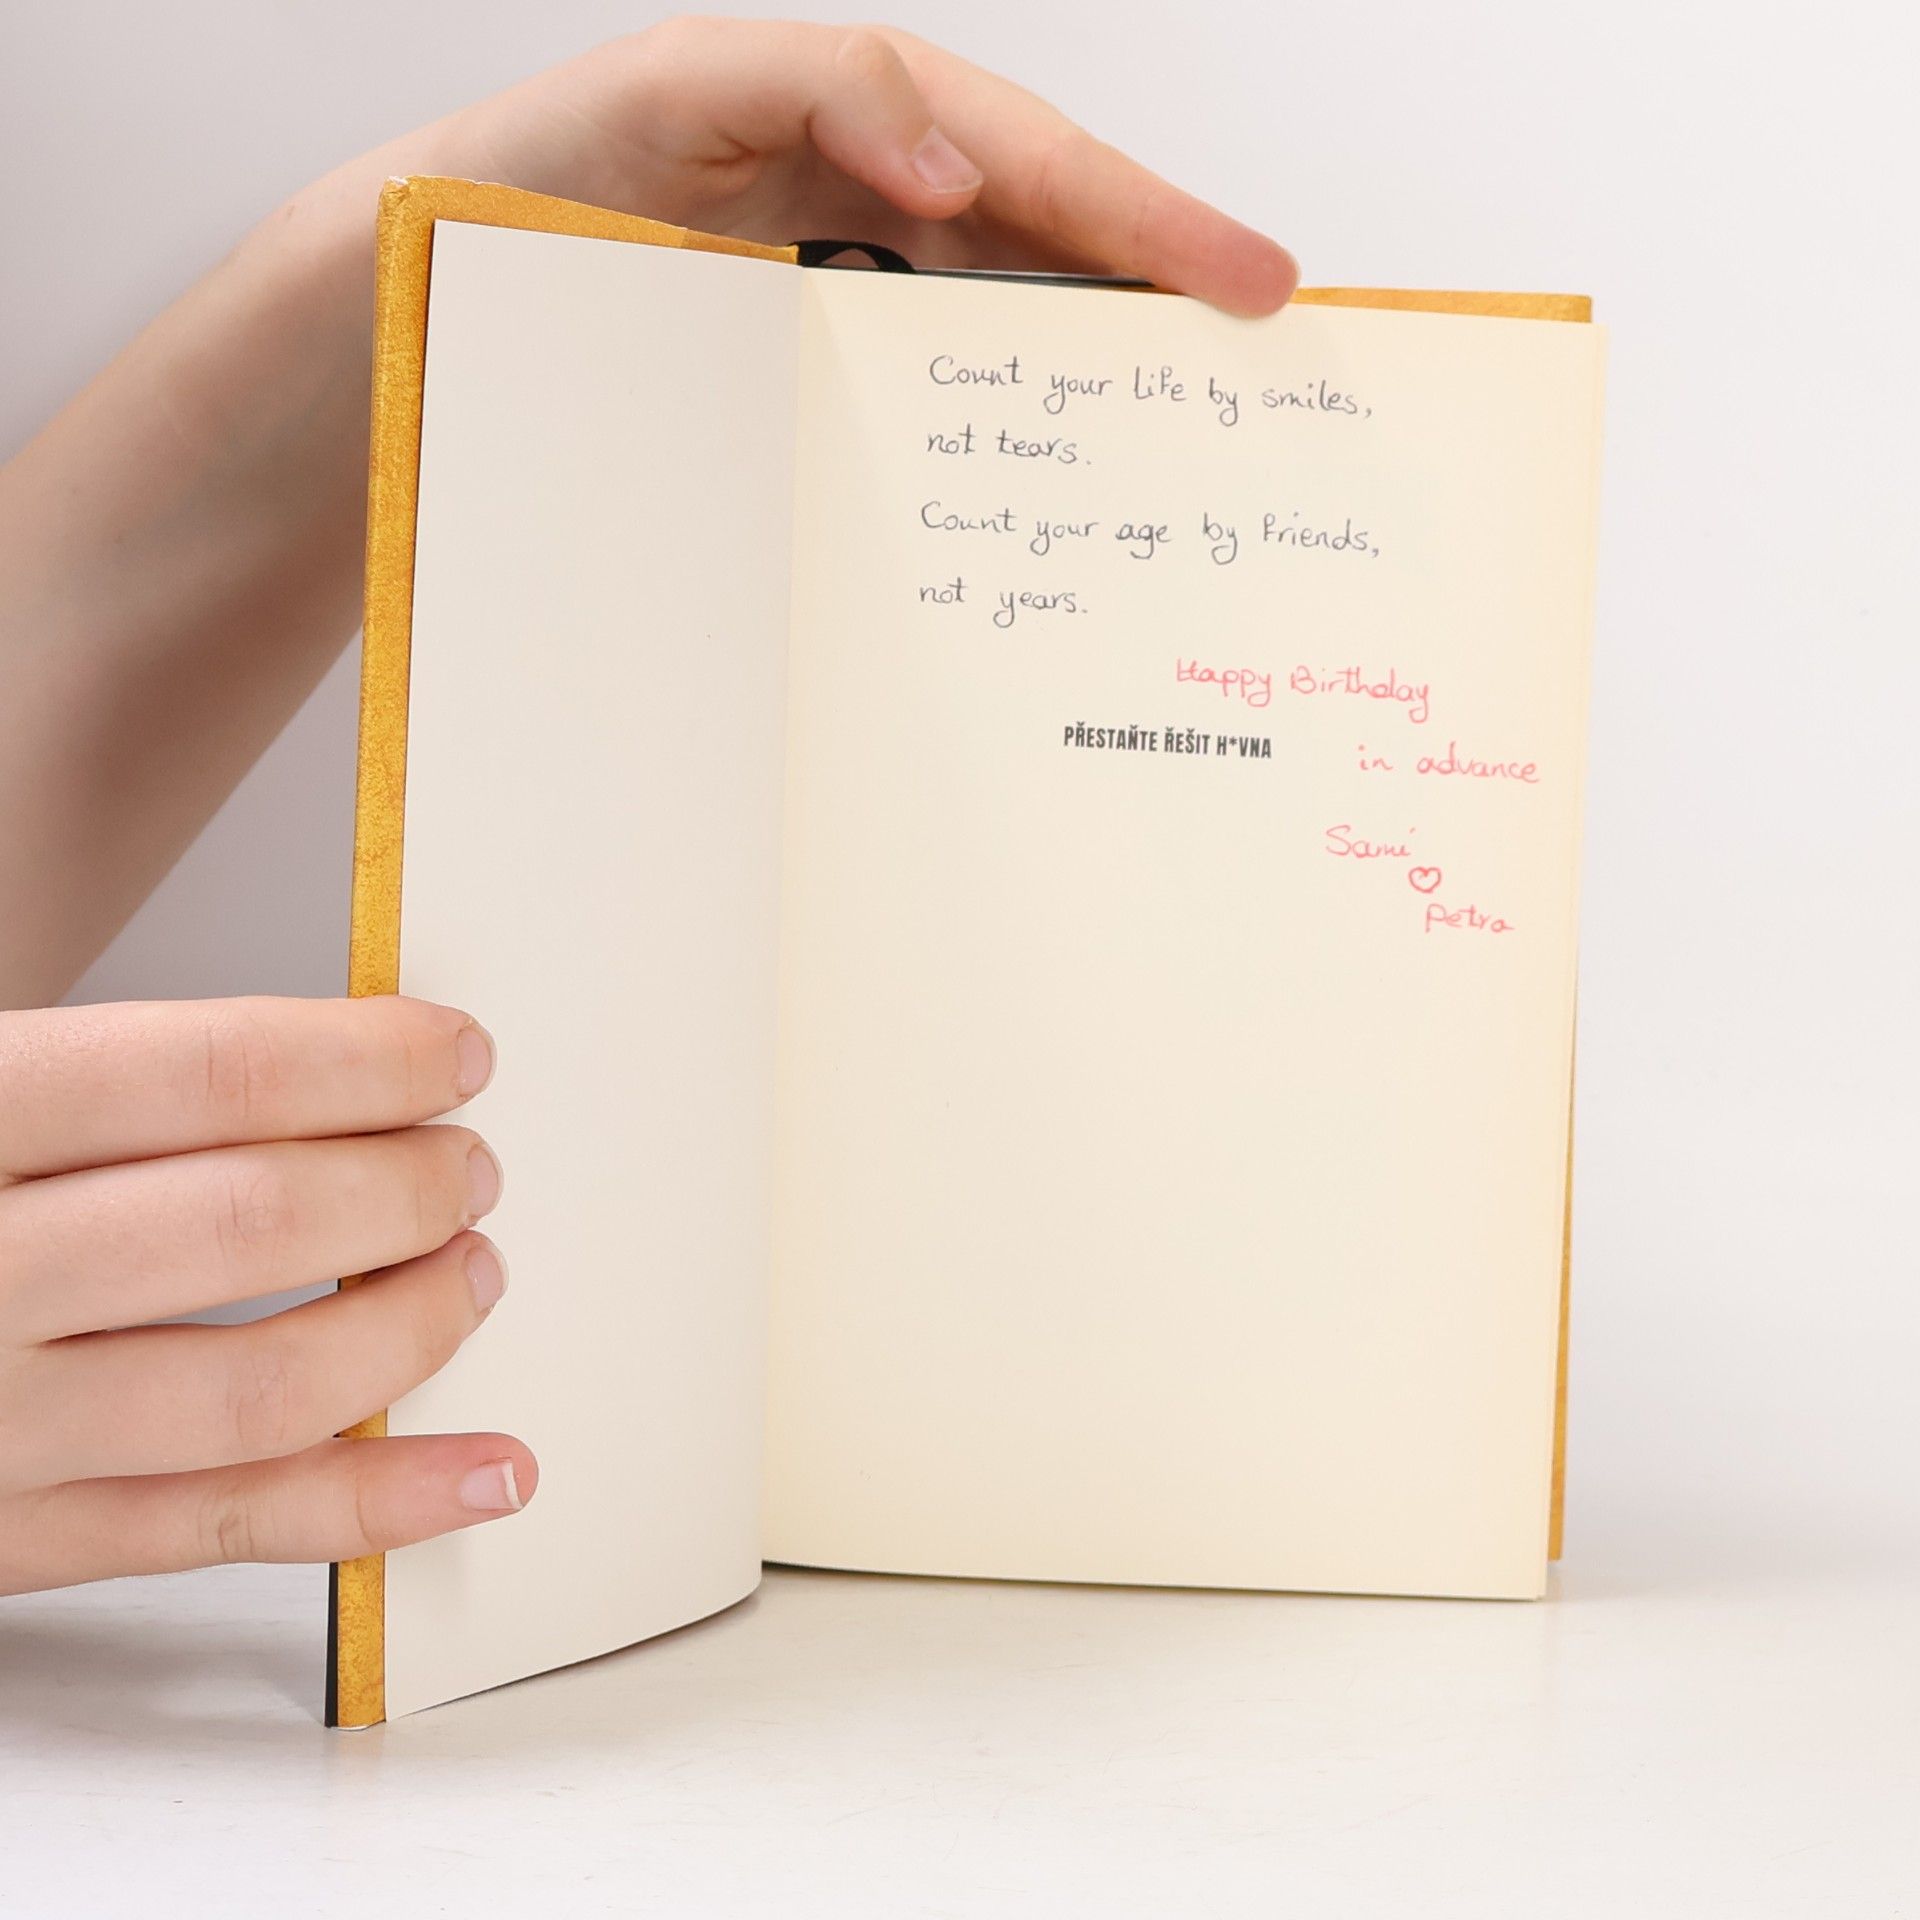 Count your life by smiles,
not tears.
Count your age by friends,
not years.
Happy Birthday
PŘESTAŇTE ŘEŠIT H*VNA
in advance
Sami
♡
Petra